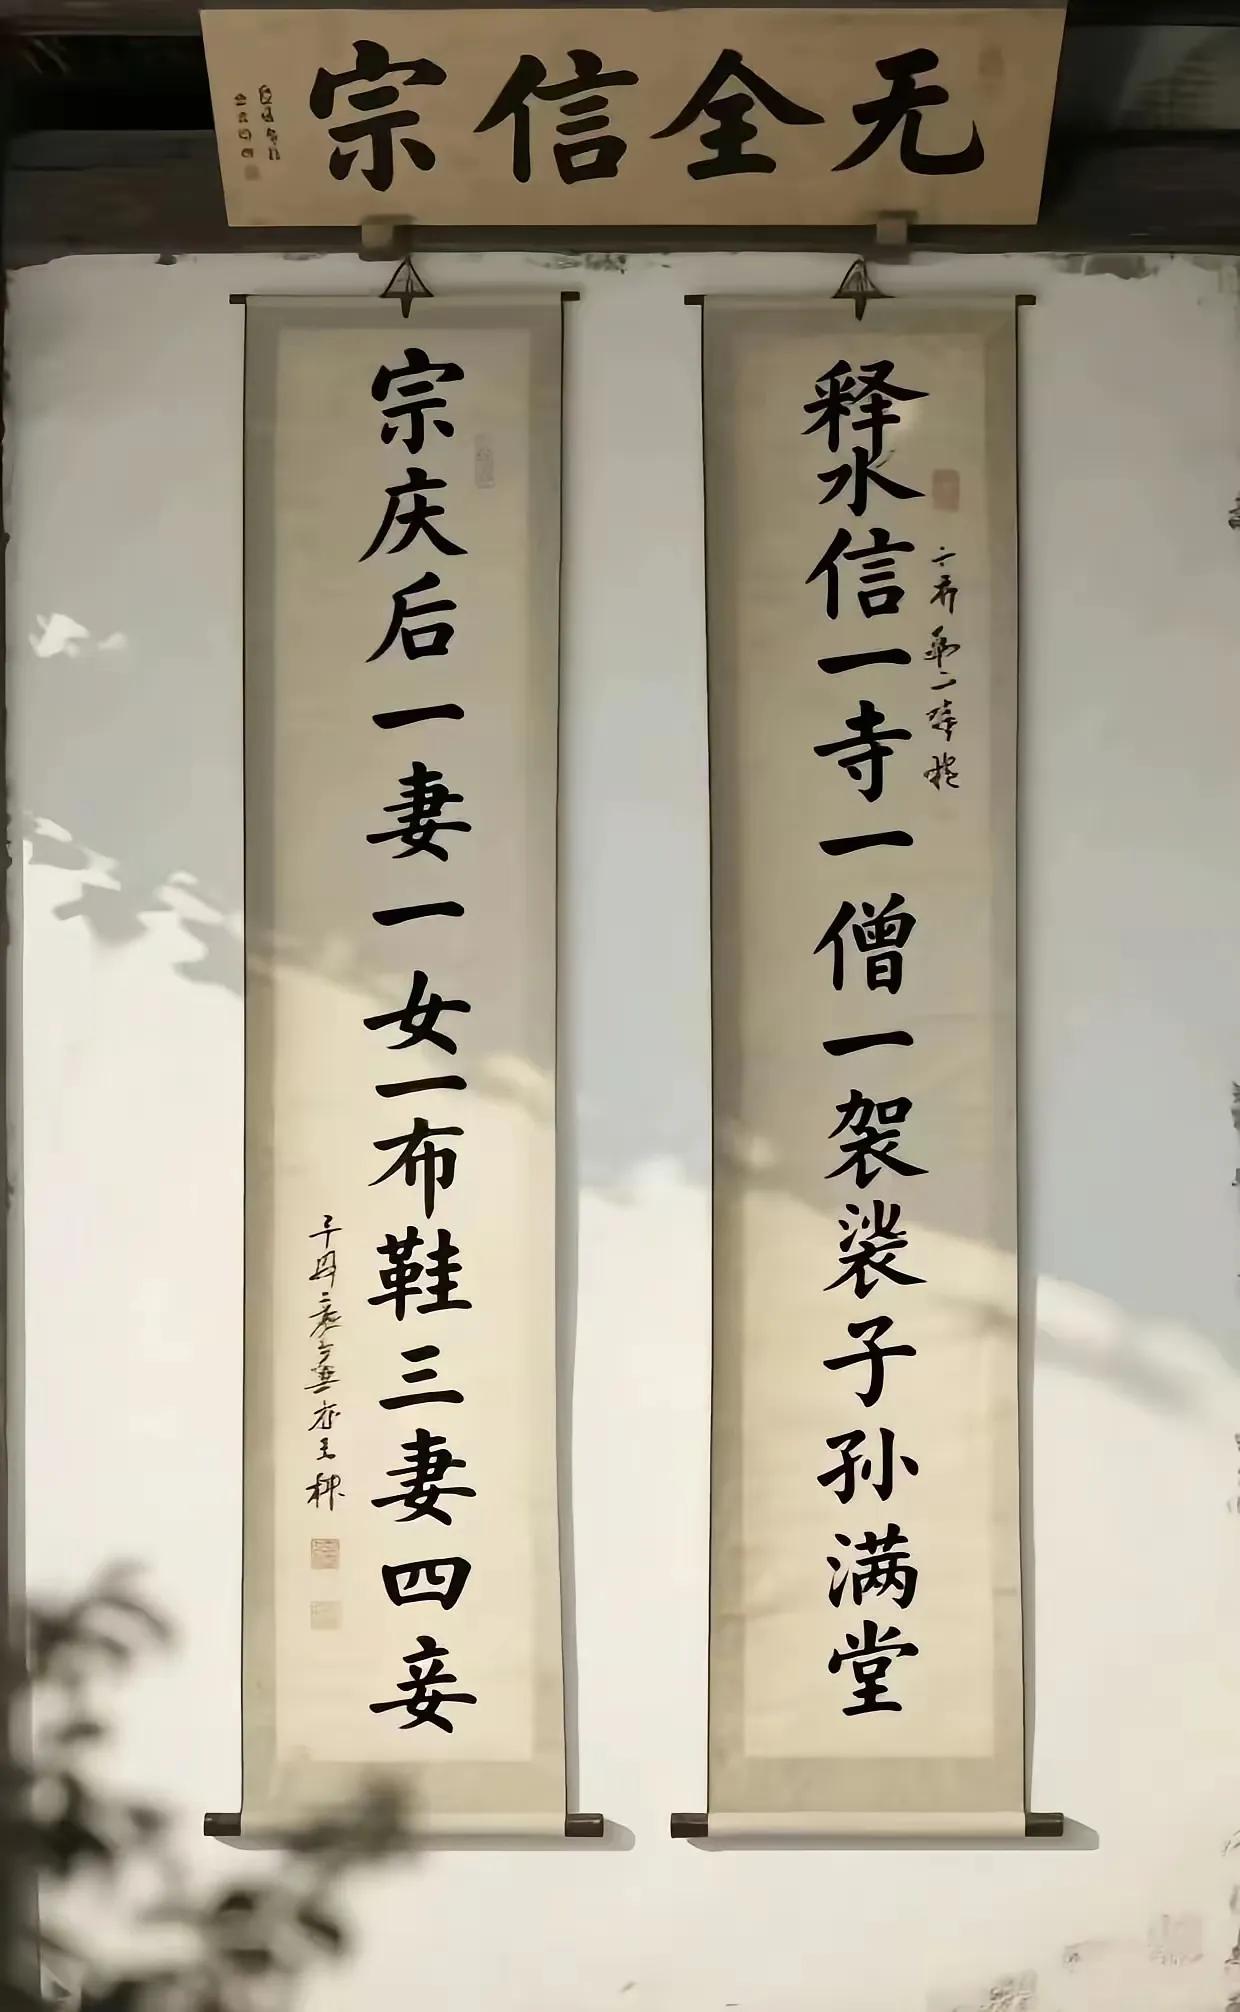 无全信宗
释水信一寺一僧一袈裟子孙满堂
宗庆后一妻一女一布鞋三妻四妾